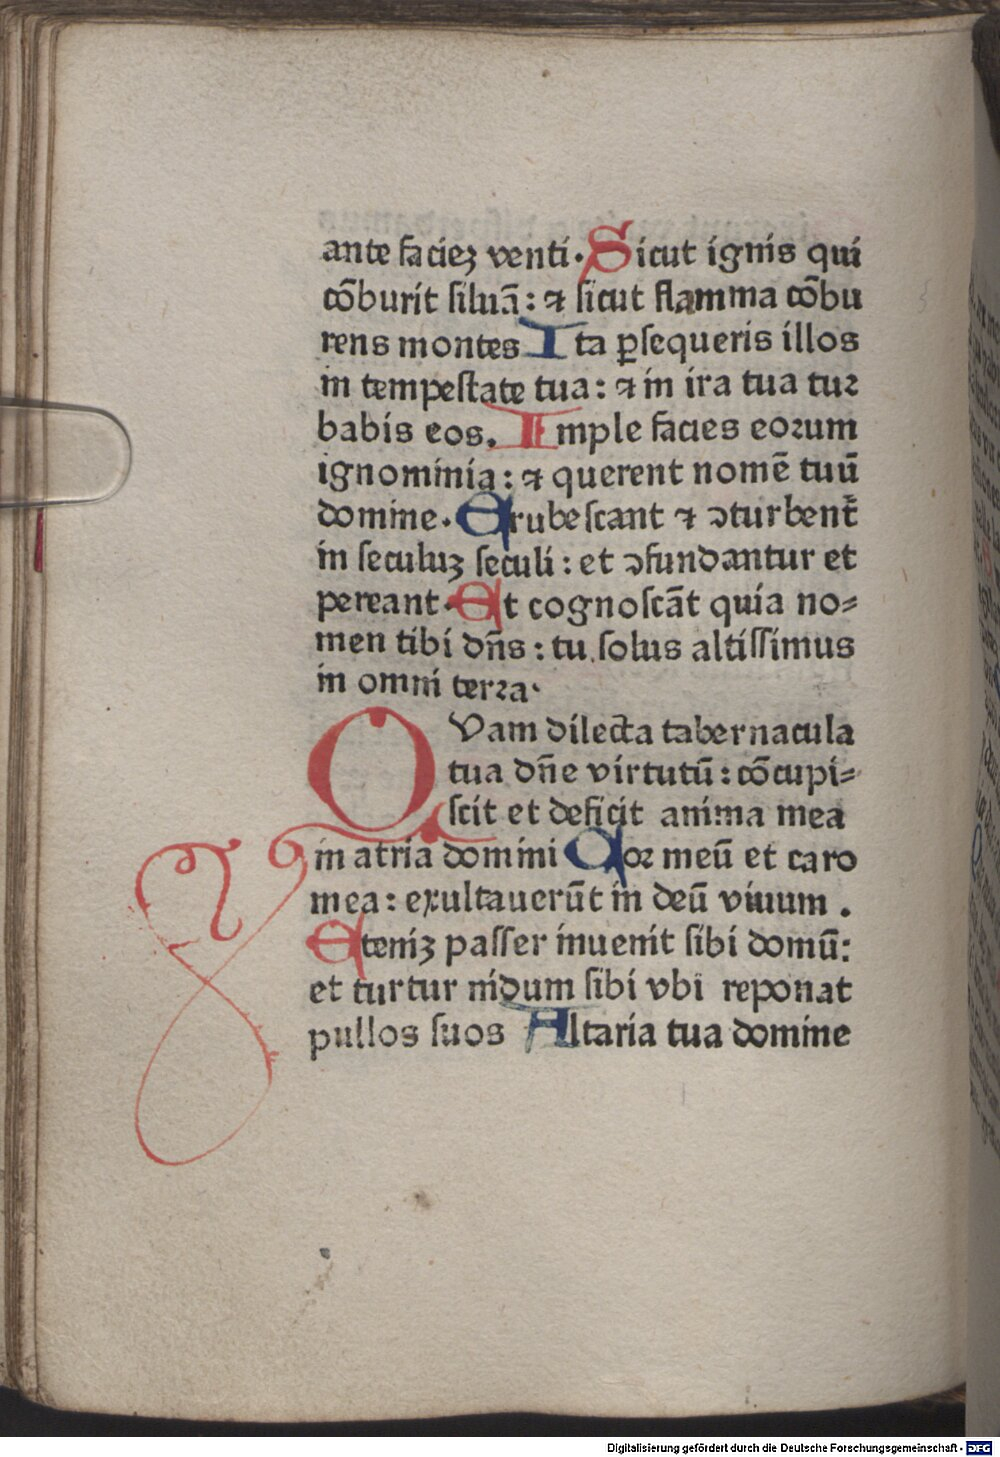 ante facieʒ venti. Sicut ignis qui
cõburit siluã: ⁊ sicut flamma cõbu
rens montes Ita ꝑsequeris illos
in tempestate tua: ⁊ in ira tua tur
babis eos. Imple facies eoꝛum
ignominia: ⁊ querent nomē tuū
domine. Erubescant ⁊ ꝯturbent᷑
in seculuʒ seculi: et ꝯfundantur et
pereant. Et cognoscāt quia no⸗
men tibi dn̄s: tu solus altissimus
in omni terꝛa.
QVam dilecta tabernacula
tua dn̄e virtutū: cōcupi⸗
scit et deficit anima mea
in atria domini Coꝛ meū et caro
mea: exultauerūt in deū viuum.
Eteniʒ passer inuenit sibi domū:
et turtur nidum sibi vbi reponat
pullos suos Altaria tua domine
Digitalisierung gefördert durch die Deutsche Forschungsgemeinschaft - DFG